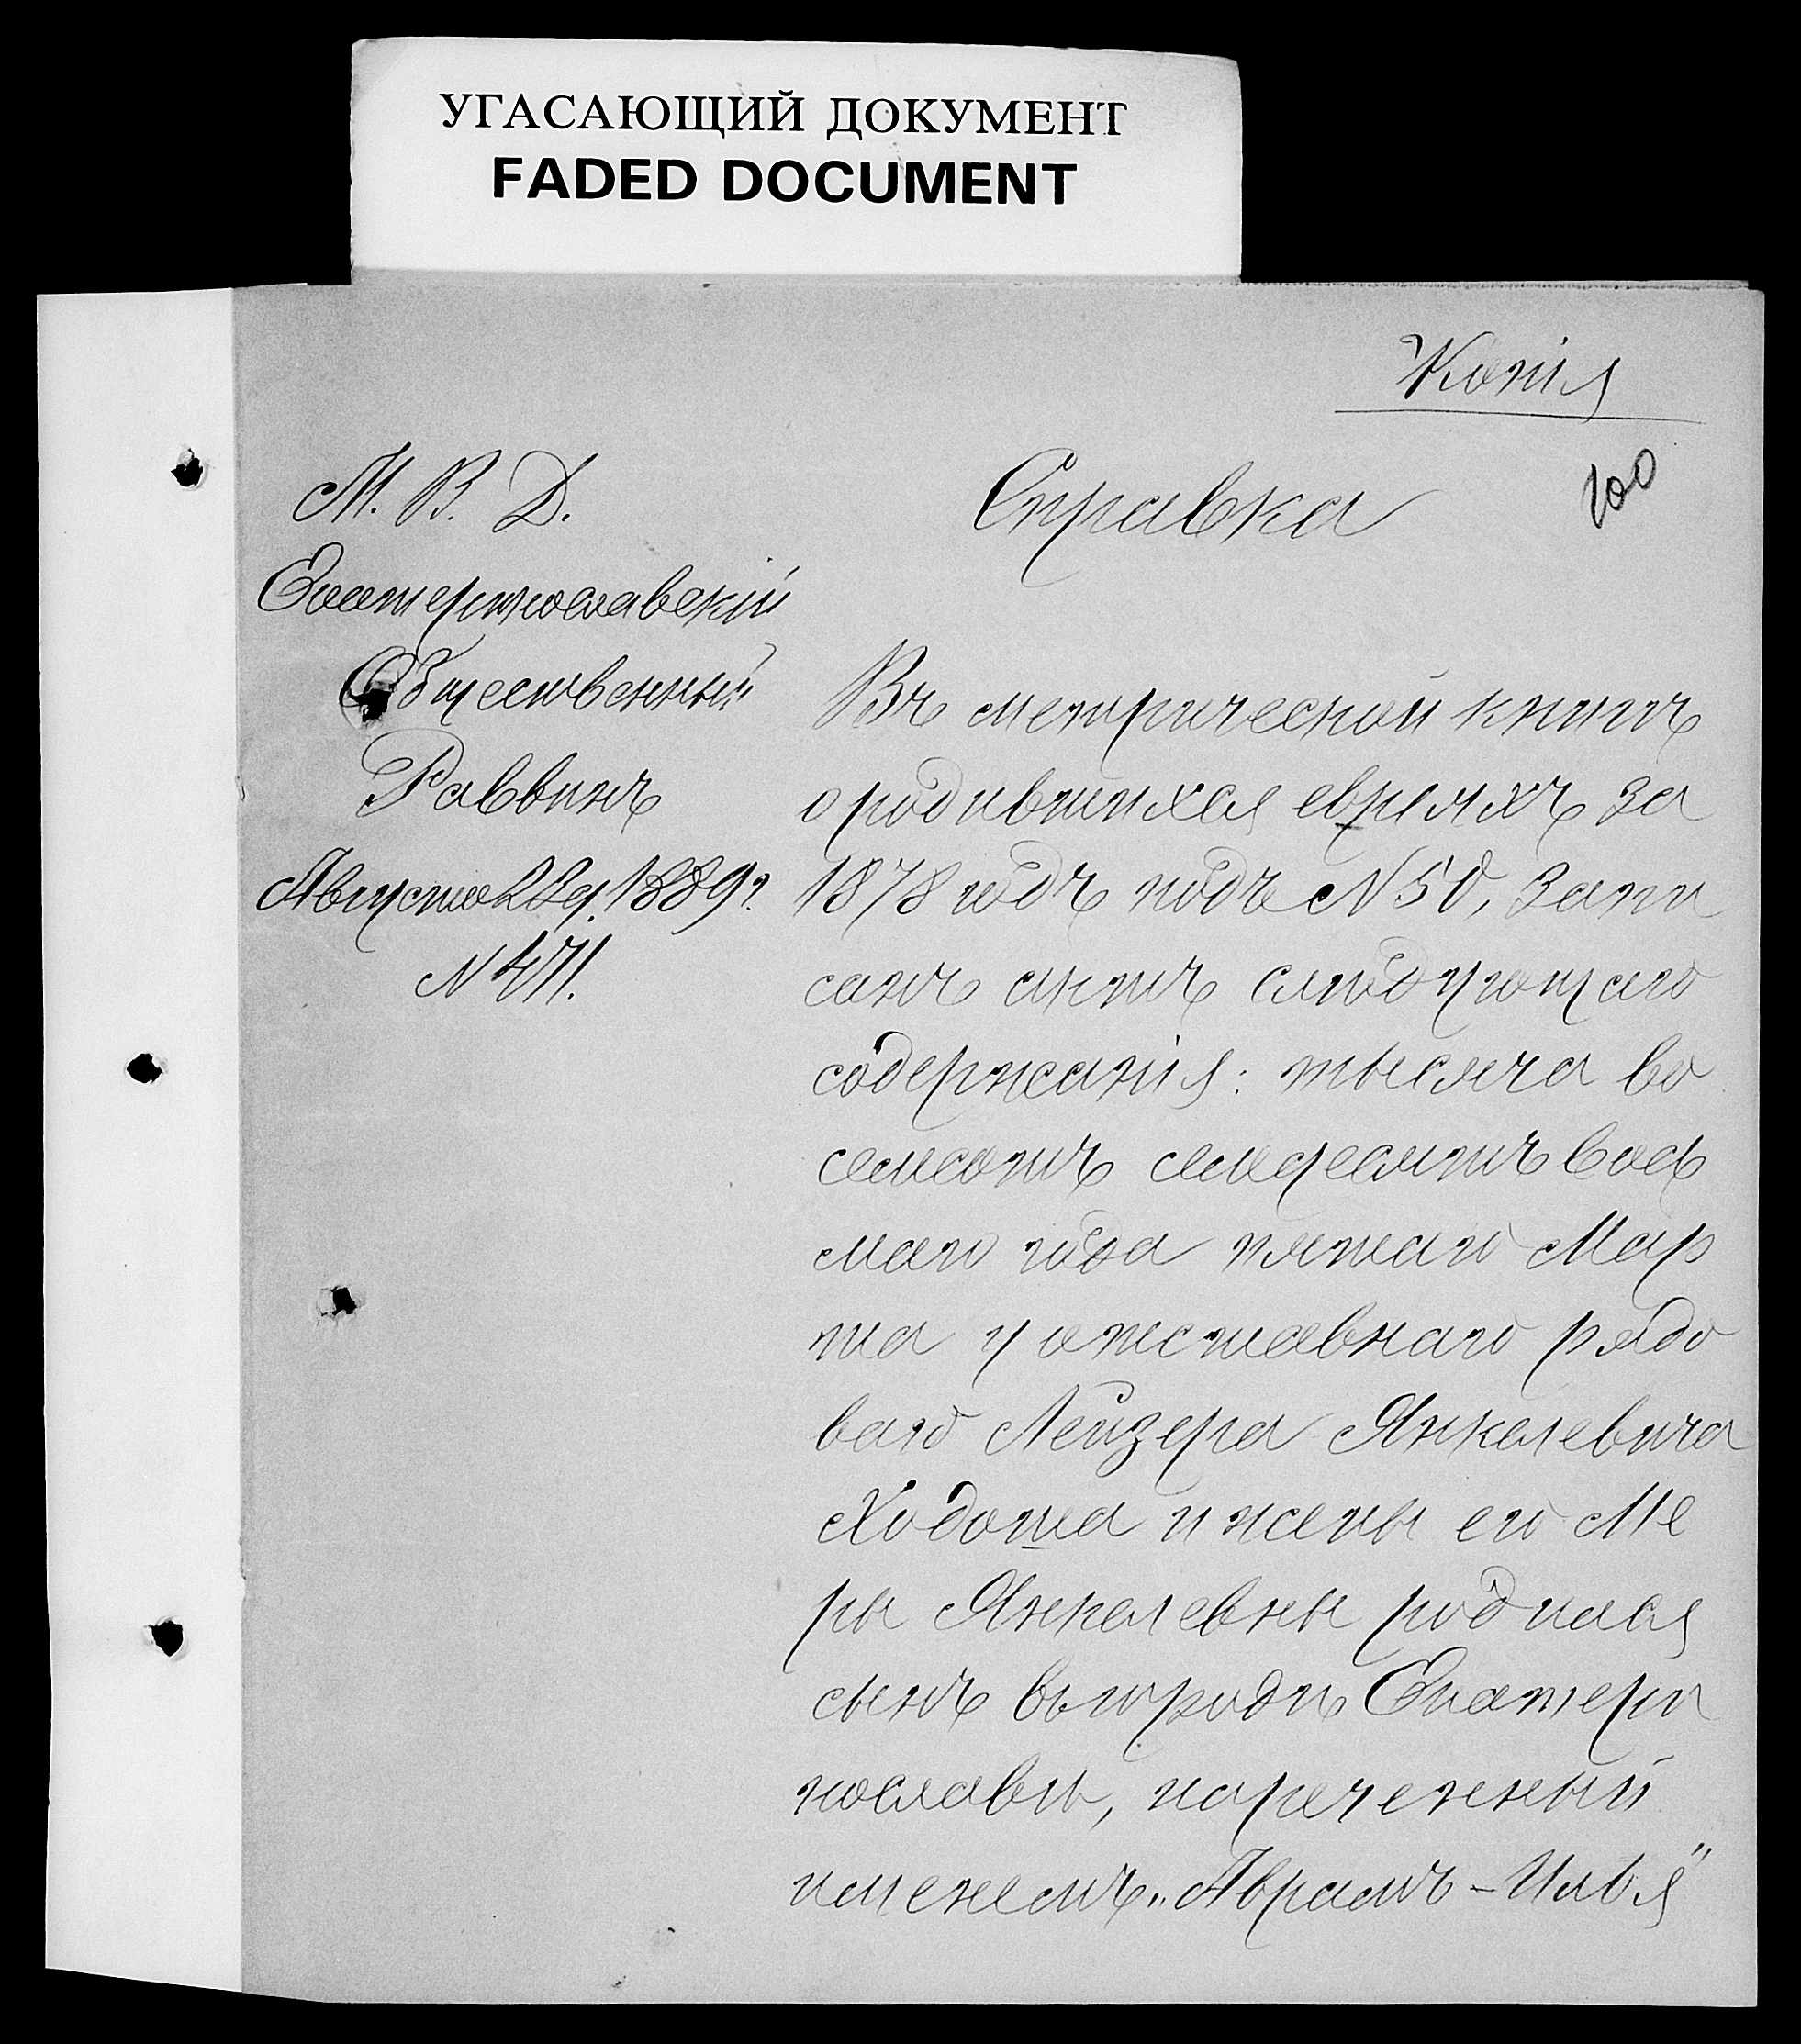 УГАСАЮЩИЙ ДОКУМЕНТ
FADED DOCUMENT
Копія
100
М. В. Д.
Екатеринославскій
Общественный
Раввинъ
Августа 22 д. 1889 г.
N 471.
Справка
Въ метрической книгѣ
о родившихся евреяхъ за
1878 годъ подъ N 50, запи
санъ актъ слѣдующаго
содержанія: тысяча во
семсотъ семдесятъ вось
маго года пятаго Мар
та у отставнаго рядо
ваго Лейзера Янкелевича
Ходоша и жены его Ме
ры Янкелевны родился
сынъ въ городѣ Екатери
нославѣ, нареченный
именемъ „Аврамъ-Илья"